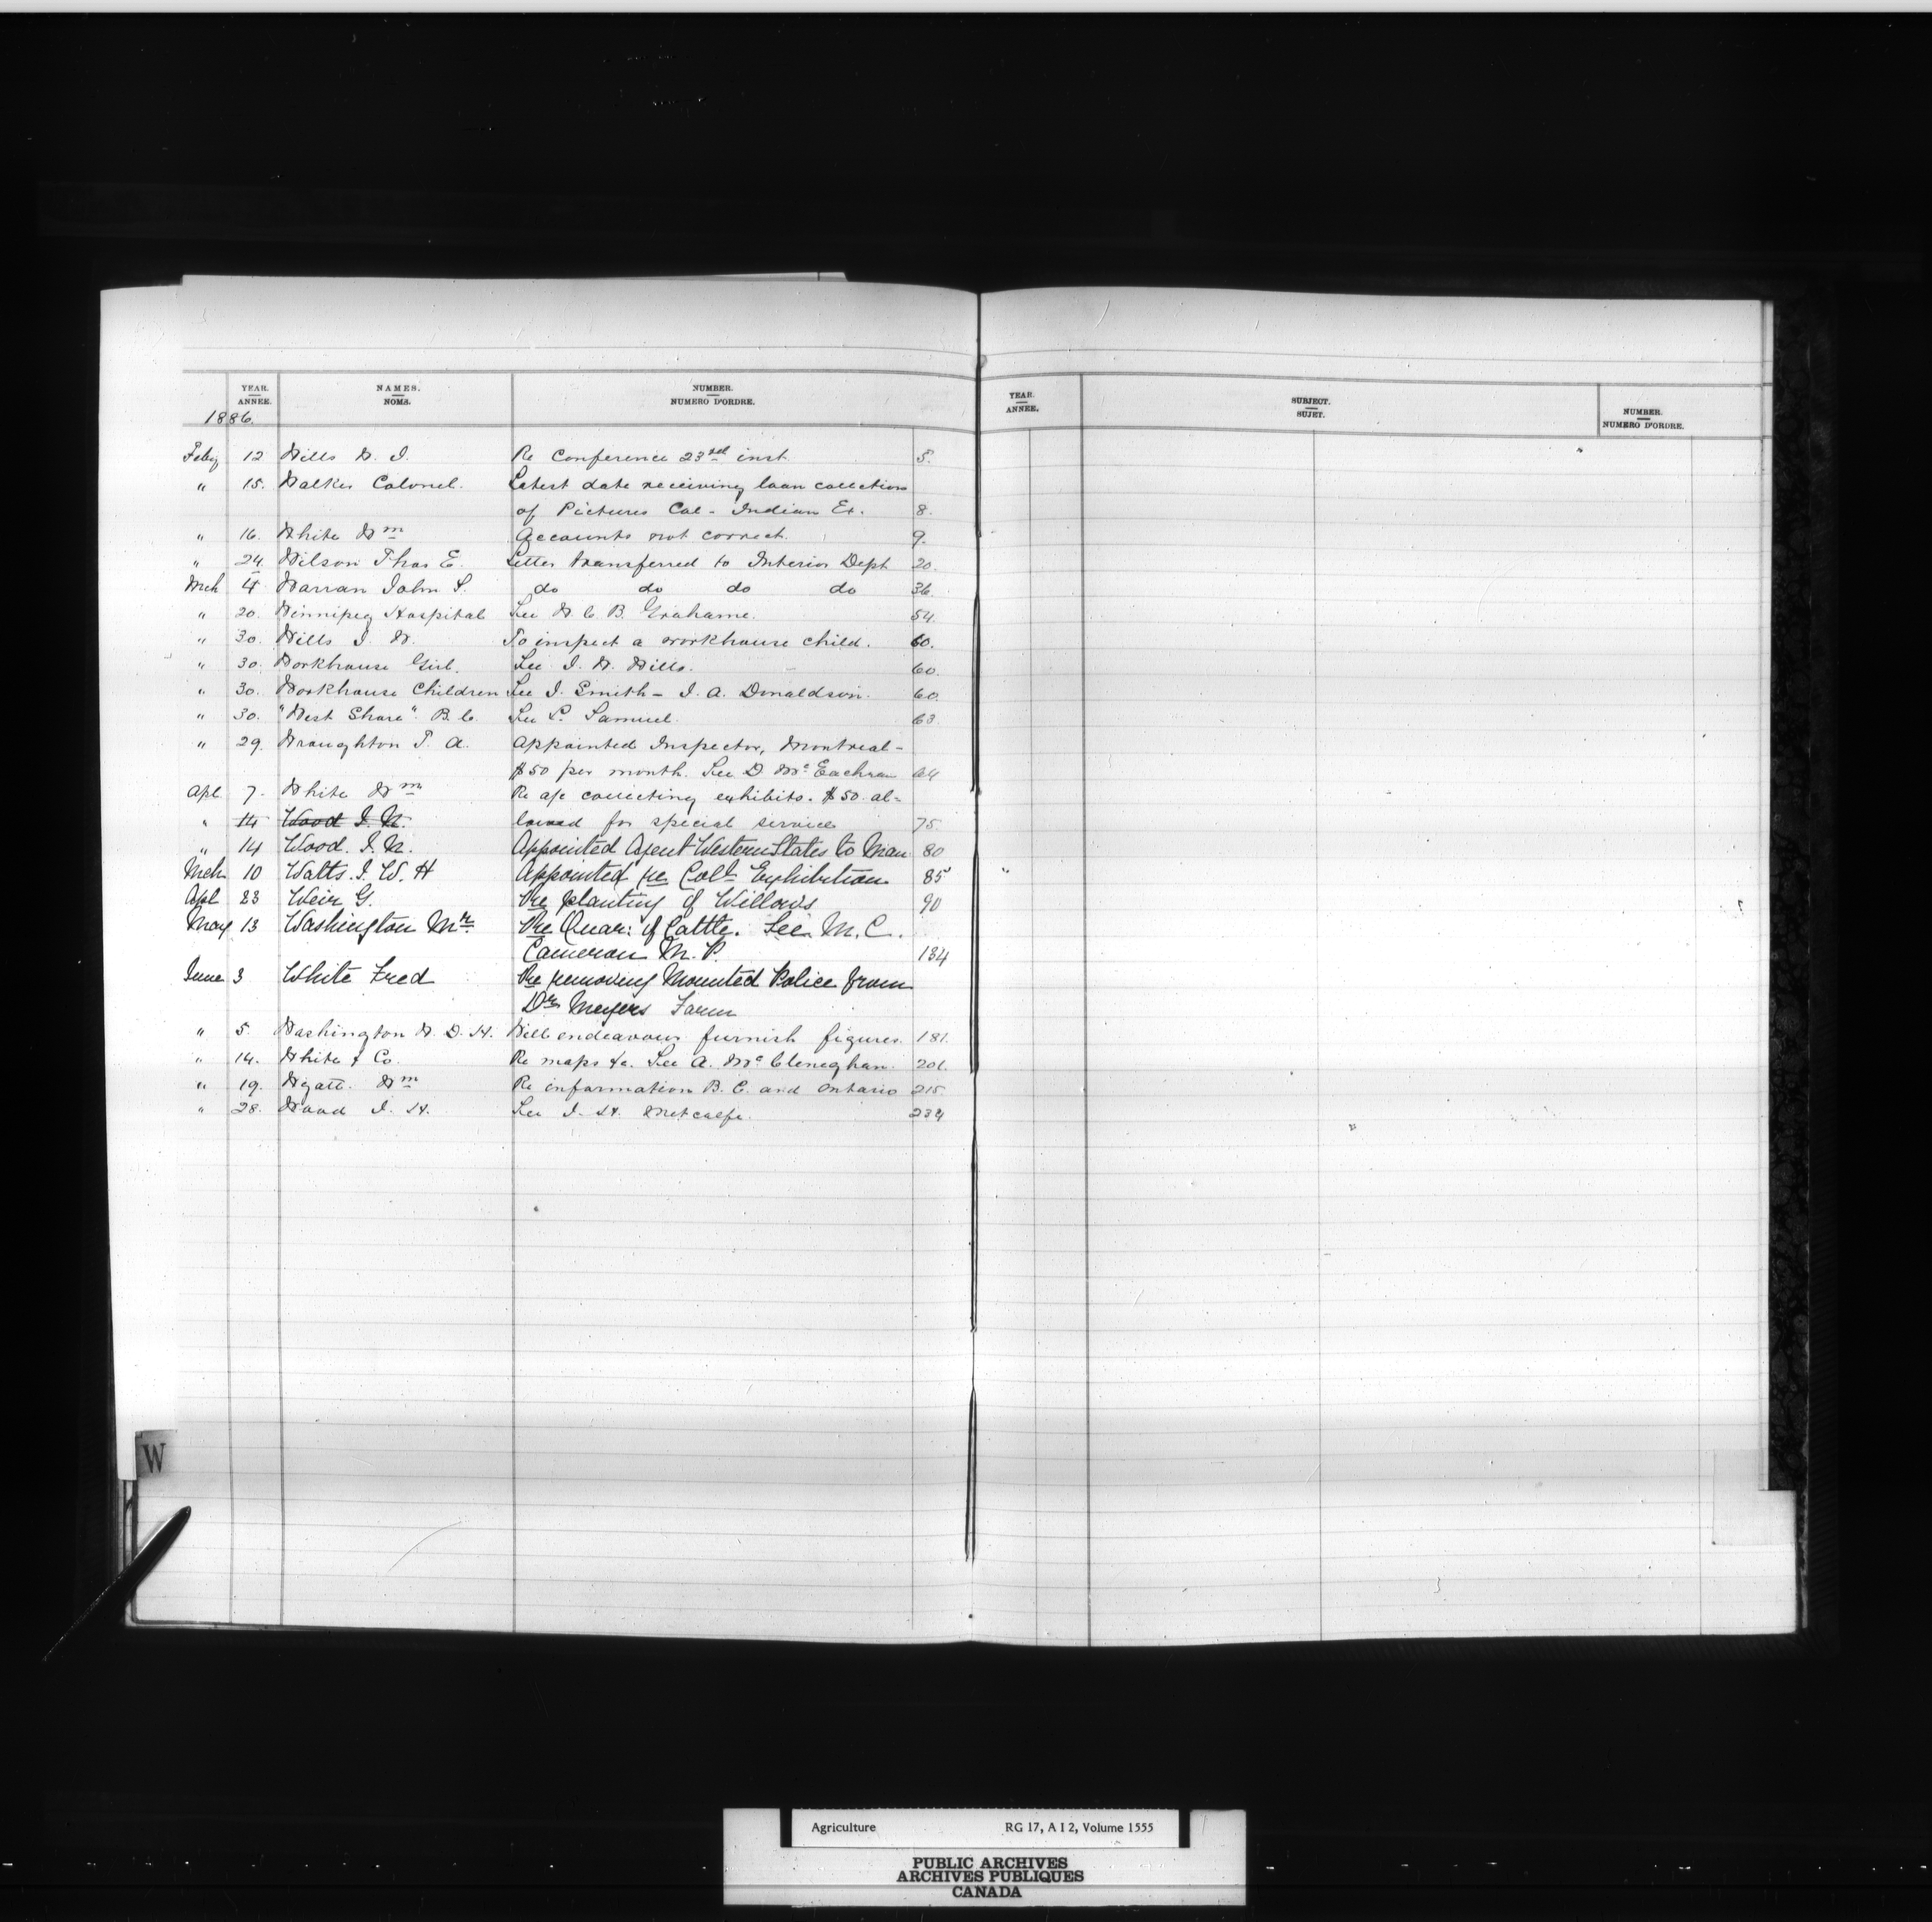 YEAR. ANNÉE. NAMES. NOMS. NUMBER. NUMERO D'ORDRE.
1886.
YEAR. ANNÉE. SUBJECT. SUJET. NUMBER. NUMERO D'ORDRE.
Feby 12 Wills W. J. Re Conference 23rd inst. 5.
" 15. Walker Colonel. Latest date receiving loan collection
of Pictures Col - Indian Ex. 8.
" 16. White Wm Accounts not correct. 9.
" 24. Wilson Thos E. Letter transferred to Interior Dept 20.
Mch 4 Warran John S. do do do do 36.
" 20. Winnipeg Hospital See W. C. B. Grahame. 54.
" 30. Wills J. W. To inspect a workhouse child. 60.
" 30. Workhouse Girl. See J. W. Wills. 60.
" 30. Workhouse Children See J. Smith - J. A. Donaldson. 60.
" 30. "West Shore" B.C. See L. Samuel. 63.
" 29. Wroughton T. A. Appointed Inspector, Montreal -
$50 per month. See D. McEachran 64
Apl 7. White Wm Re a/c collecting exhibits. $50. al=
" 14 Wood J. N. lowed for special services 75.
" 14 Wood. J. N. Appointed Agent Western States to Man 80
Mch 10 Watts. J. W. H Appointed re Coll Exhibition 85
Apl 23 Weir G. Re planting of Willows 90
May 13 Washington Mr. Re Quar: of Cattle. See M. C.
Cameron M. P. 134
June 3 White Fred Re removing Mounted Police from
Dr Meyers Farm
" 5. Washington W. D. H. Will endeavour furnish figures. 181.
" 14. White & Co. Re maps &c. See A. McCleneghan. 201.
" 19. Wyatt. Wm Re information B. C. and Ontario 215.
" 28. Wood J. H. See J. H. Metcalfe. 234
W
Agriculture RG 17, A I 2, Volume 1555
PUBLIC ARCHIVES
ARCHIVES PUBLIQUES
CANADA